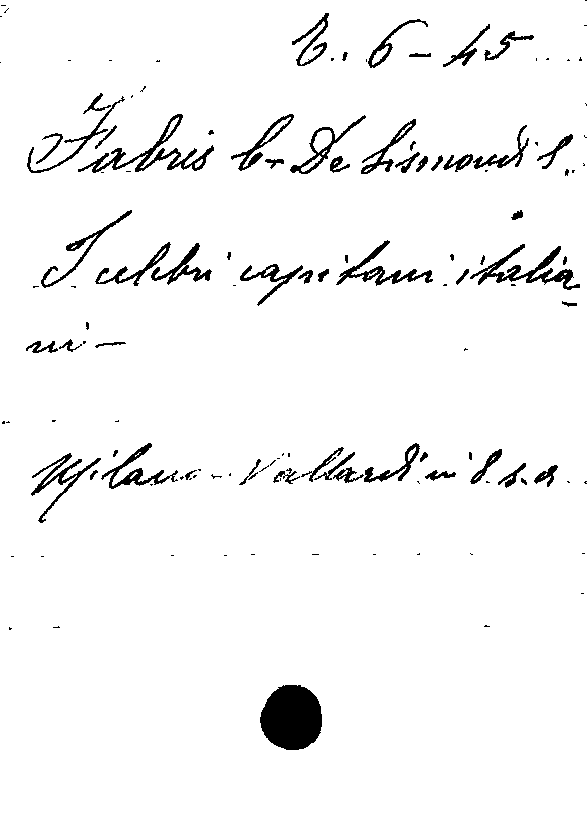 E. 6 - 45
Fabris C. - De Sismondi S.
I celebri capitani italia
ni -
Milano - Vallardi in 8 s.a